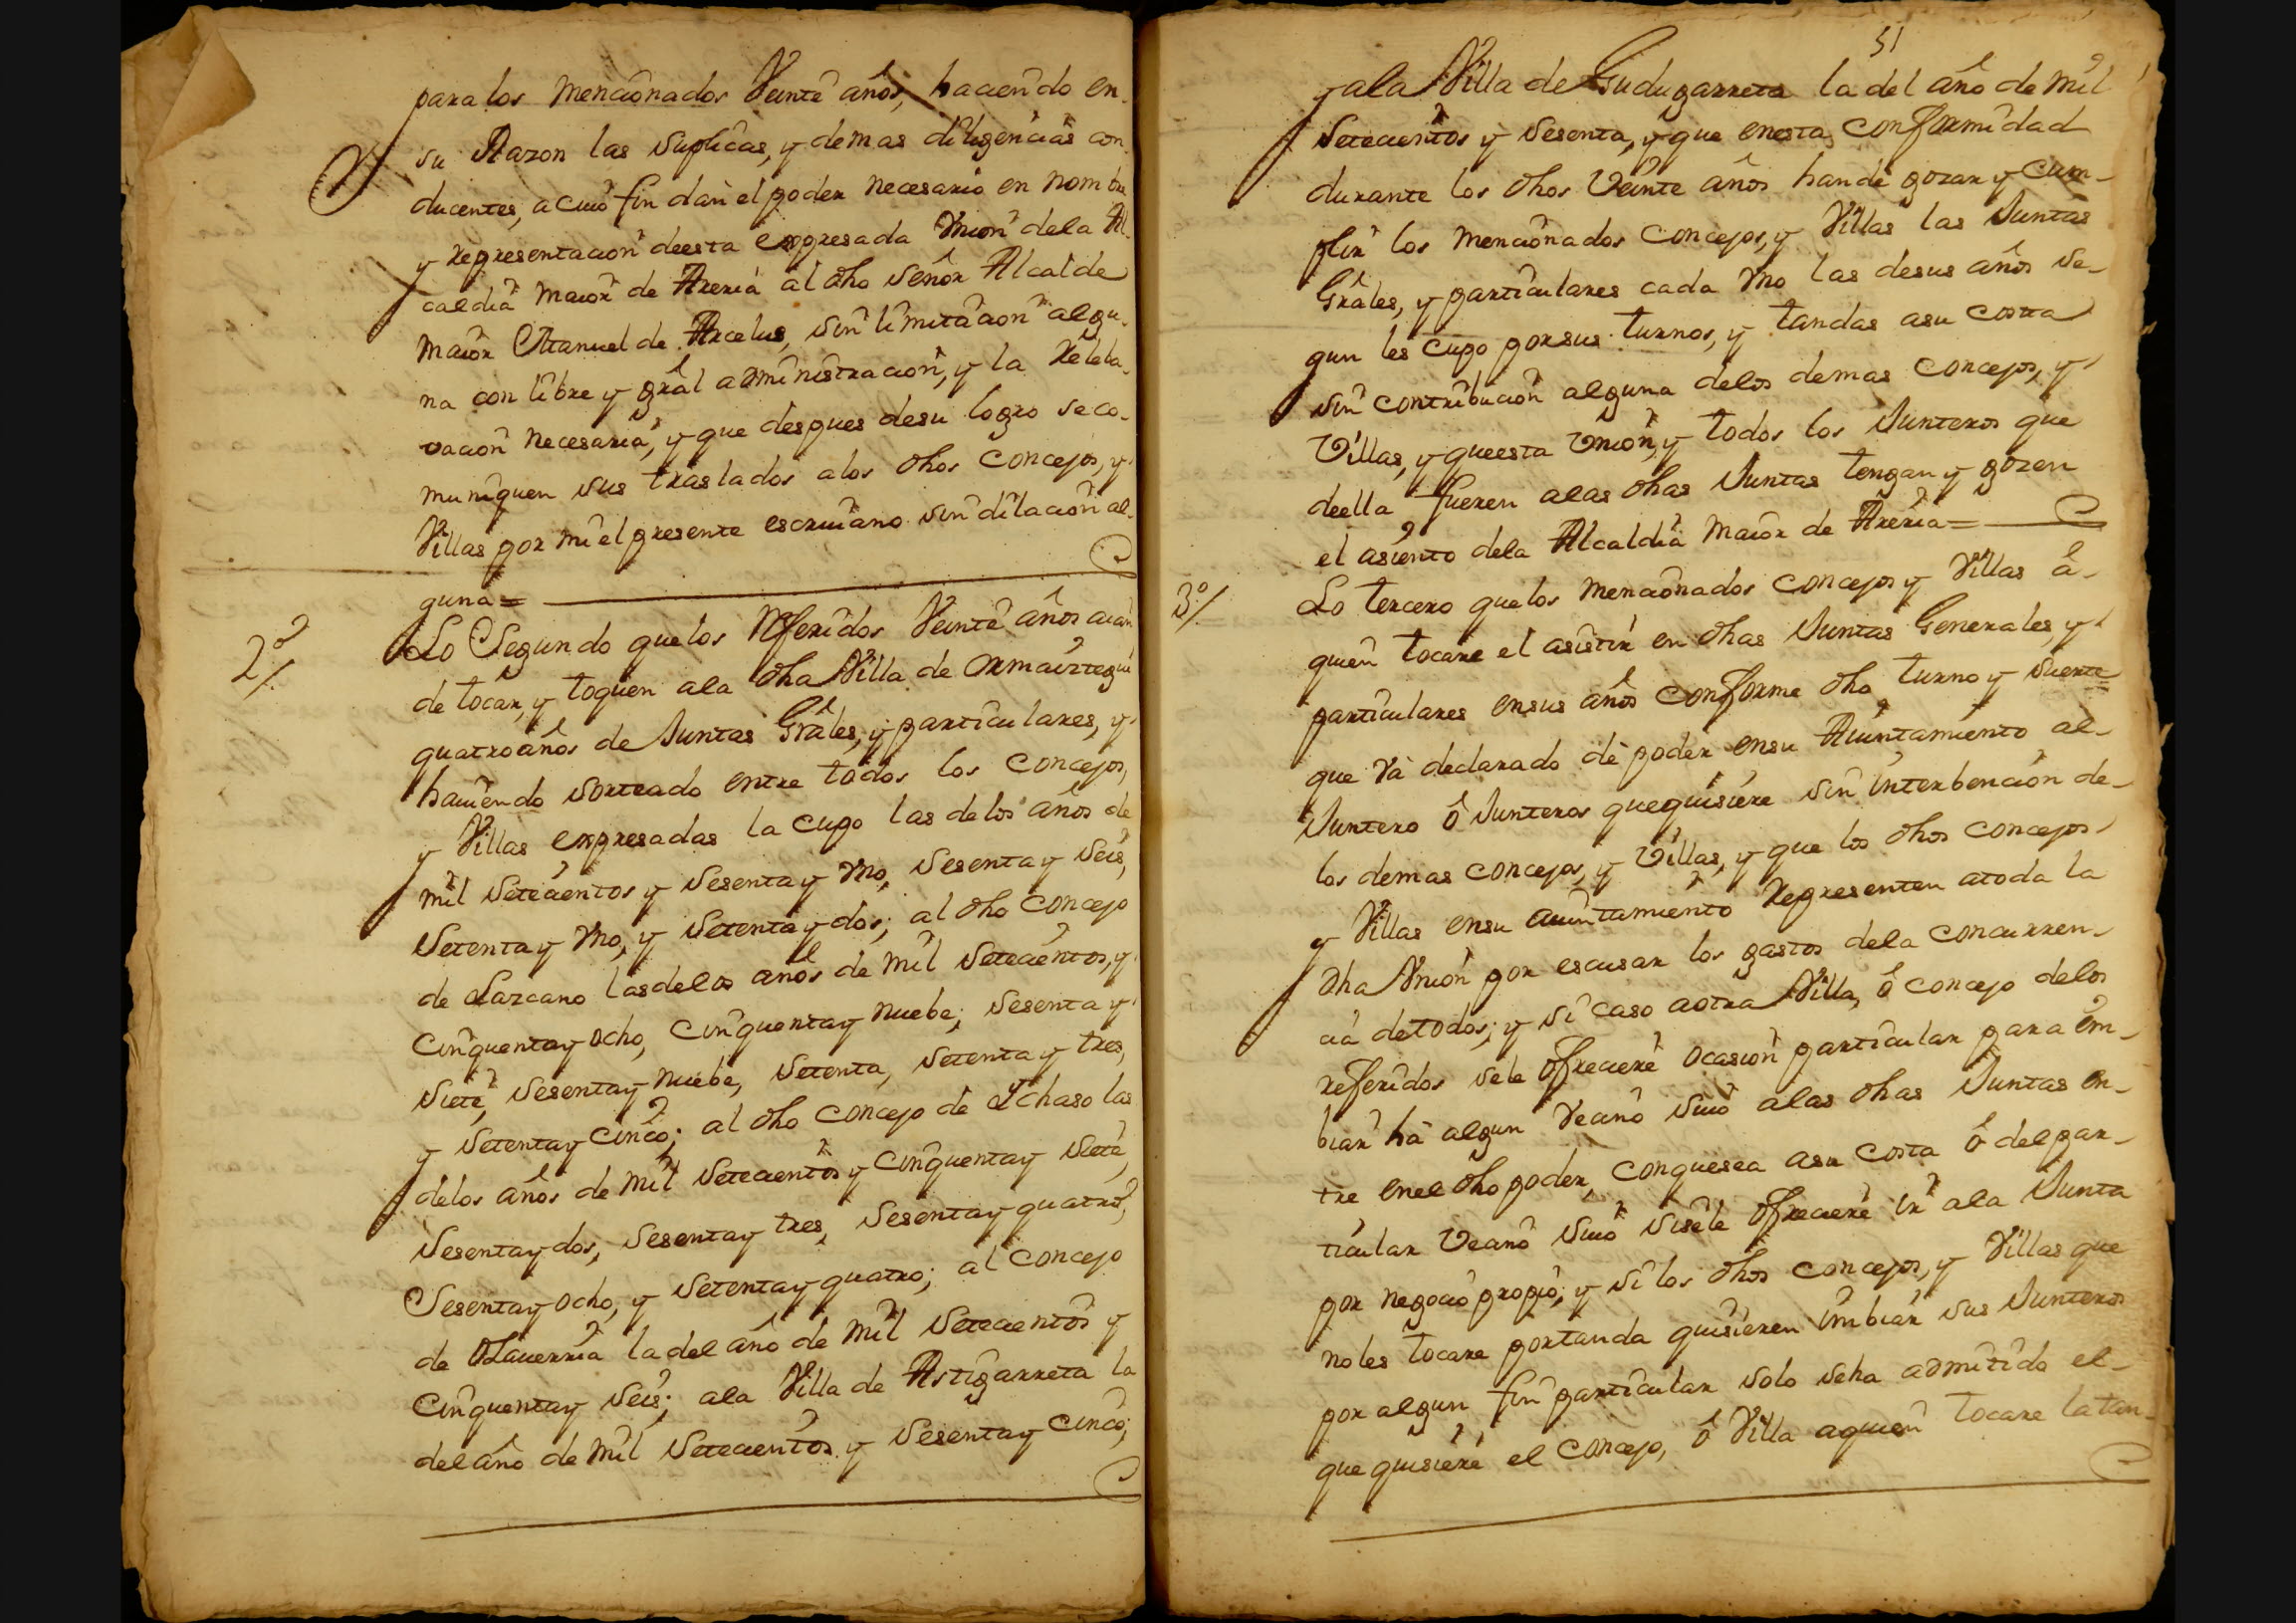 para los mencionados Veinte años, haciendo en
su Razon las suplicas, y demas diligencias con
ducentes, a cuio fin dan el poder necesario en nombre
y representacion de esta expresada Vnion dela Al-
caldia maior de Areria al dho señor Alcalde
maior Manuel de Arcelus, sin limitacion algu-
na con libre y gral administracion, y la releba-
vacion necesaria, y que despues desu logro se co-
muniquen sus traslados alos dhos Concejos, y
Villas por mi el presente escriuano sin dilacion al-
guna =
2º/. Lo Segundo que los Referidos Veinte años aian
de tocar, y toquen ala dha Villa de Ormaiztegui
quatro años de Juntas Grales, y particulares, y
hauiendo sorteado entre todos los Concejos,
y Villas expresadas la cupo las delos años de
mil setecientos y sesenta y Vno, sesenta y seis,
setenta y Vno, y setenta y dos; al dho Concejo
de Lazcano las delos años de mil setecientos, y
Cinquenta y ocho, Cinquenta y nuebe, sesenta y
siete, sesenta y nuebe, setenta, setenta y tres,
y setenta y cinco; al dho Concejo de Ychaso las
delos años de mil setecientos y Cinquenta y siete,
sesenta y dos, sesenta y tres, sesenta y quatro,
Sesenta y ocho, y setenta y quatro; al Concejo
de Olauerria la del año de mil setecientos y
Cinquenta y seis; ala Villa de Astigarreta la
del año de mil setecientos y sesenta y cinco;
51
y ala Villa de Gudugarreta la del año de mil
setecientos y sesenta, y que enesta Conformidad
durante los dhos Veinte años hande gozar y Cum-
plir los mencionados Concejos, y Villas las Juntas
Grales, y particulares cada Vno las desus años se-
gun les cupo por sus turnos, y tandas asu costa
sin contribucion alguna delos demas Concejos, y
Villas, y que esta Vnion, y todos los Junteros que
deella fueren alas dhas Juntas tengan y gozen
el asiento dela Alcaldia maior de Areria =
3º/. Lo tercero que los mencionados Concejos y Villas á-
quien tocare el asistir en dhas Juntas Generales, y
particulares ensus años conforme dho turno y suerte
que Va declarado dé poder ensu Aiuntamiento al-
Juntero ó Junteros que quisiere sin interbencion de-
los demas concejos, y Villas, y que los dhos Concejos
y Villas ensu aiuntamiento Representen atoda la
dha Vnion por escusar los gastos dela Concurren-
cia de todos; y si caso aotra Villa, ó Concejo delos
referidos sele ofreciere ocasion particular para Em-
biar ha algun Vecino suio alas dhas Juntas en-
tre enel dho poder, conquesea asu costa ó del par-
ticular Vecino suio sisele ofreciere ir ala Junta
por negocio propio; y si los dhos Concejos, y Villas que
noles tocare portanda quisieren imbiar sus Junteros
por algun fin particular solo seha admitido el-
que quisiere el Concejo, ó Villa aquien tocare la tan-